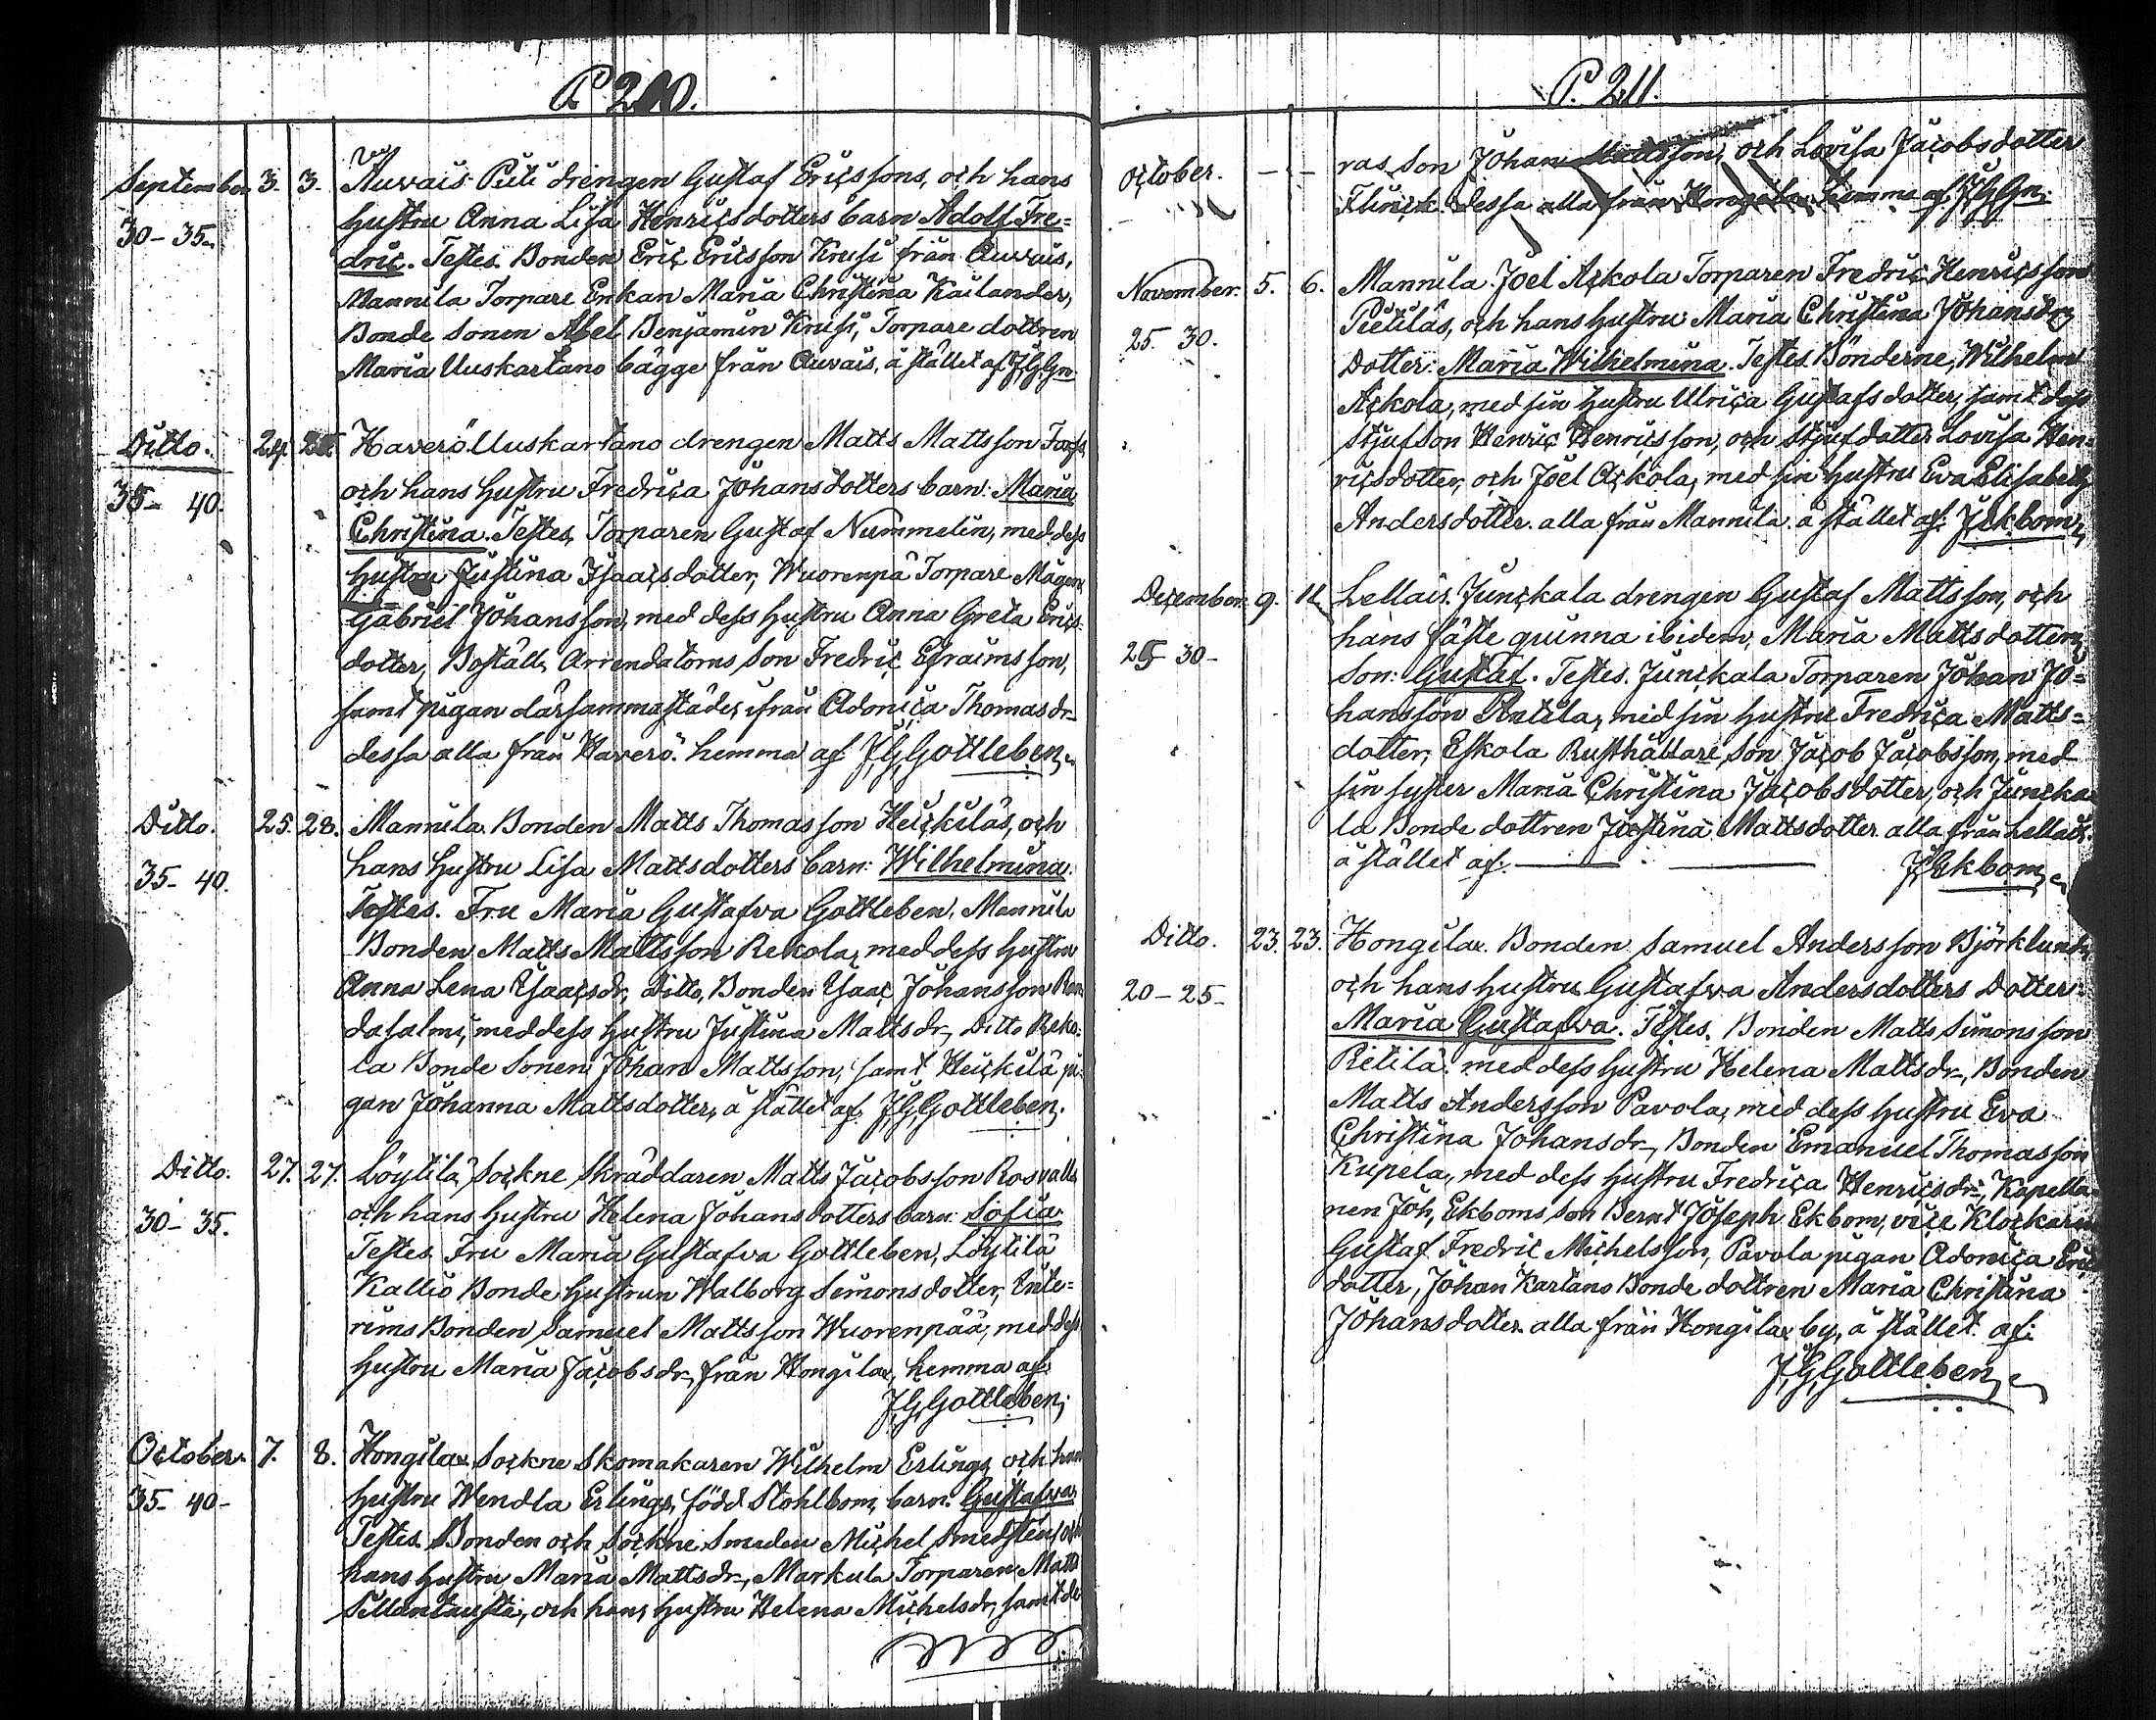 P 210.
September 3. 3. Auvais Piti drengen Gustaf Ericssons, och hans
30-35. hustru Anna Lisa Henricsdotters barn Adolf Fre=
dric. Testes. Bonden Eric Ericsson Krusi från Auvais,
Mannila Torpare Enkan Maria Christina Kailander,
Bonde Sonen Abel Benjamin Krusi, Torpare dottren
Maria Uuskartano bägge från Auvais, å stället af. J,G,Gn.
Ditto. 24. Haverö Uuskartano drengen Matts Mattsson
35- 40. och hans hustru Fredrica Johansdotters barn: Maria
Christina. Testes, Torparen Gustaf Nummelin, med dess
hustru Justina Isaacsdotter, Wuorenpä Torpare Mågen,
Gabriel Johansson, med dess hustru Anna Greta Erics
dotter, Boställs Arrendatorns Son Fredric Efraimsson,
samt pigan därsammastädes ifrån Adonica Thomasdr
dessa alla från Haverö. hemma af J,G,Gottleben,
Ditto. 25. 28. Mannila. Bonden Matts Thomasson Heickiläs, och
35- 40. hans hustru Lisa Mattsdotters barn: Wilhelmina.
Testes. Fru Maria Gustafva Gottleben, Mannila
Bonden Matts Mattsson Rekola, med dess hustru
Anna Lena Isaacsdr, Ditto, Bonden Isaac Johansson Ran
dasalmi, med dess hustru Justina Mattsdr, Ditto Reko-
la Bonde Sonen Johan Mattsson, samt Heickilä pi-
gan Johanna Mattsdotter, å stället af. J,G,Gottleben.
Ditto. 27. 27. Löytilä, Sockne Skräddaren Matts Jacobsson Rosvalls
30- 35. och hans hustru Helena Johansdotters barn: Sofia.
Testes. Fru Maria Gustafva Gottleben, Löytilä
Kallio Bonde hustrun Walborg Simonsdotter, Inte=
rims Bonden Samuel Mattsson Wuorenpää, med dess
hustru Maria Jacobsdr, från Hongilax, hemma af.
J,G,Gottleben;
October. 7. 8. Hongilax Sockne Skomakaren Wilhelm Erlings, och hans
35- 40- hustru Wendla Erlings, född Stohlbom, barn: Gustafva.
Testes. Bonden och Sockne Smeden Michel Smedsten, och
hans hustru Maria Mattsdr, Markula Torparen Matts
Sillantausta, och hans hustru Helena Michelsdr, samt de
P. 211.
October. - - ras son Johan Mattsson, och Lovisa Jacobsdotter
Flinck. dessa alla från Hongilax. hemma af J,G,Gn.
November. 5. 6. Mannila. Joel Ackola Torparen Fredric Henricsson
25- 30. Pietiläs, och hans hustru Maria Christina Johansdrs
Dotter: Maria Wilhelmina. Testes. Bönderne, Wilhelm
Ackola, med sin hustru Ulrica Gustafsdotter, samt dess
Stjufson Henric Henricsson, och Stjufdotter Lovisa Hen=
ricsdotter, och Joel Ackola, med sin hustru Eva Elisabeth
Andersdotter. alla från Mannila. å stället af. J,Ekbom,
December. 9. 11. Lellais. Junckala drengen Gustaf Mattsson, och
25- 30- hans fäste quinna ibidem, Maria Mattsdotters
Son: Gustaf. Testes. Junckala Torparen Johan Jo=
hansson Antila, med sin hustru Fredrica Matts=
dotter, Eskola Rusthållare Son Jacob Jacobsson, med
sin syster Maria Christina Jacobsdotter, och Juncka
la Bonde dottren Justina Mattsdotter alla från Lellais.
å stället af. J,Ekbom,
Ditto. 23. 23. Hongilax. Bonden Samuel Andersson Björklunds,
20-25- och hans hustru Gustafva Andersdotters Dotter:
Maria Gustafva. Testes. Bonden Matts Simonsson
Pietilä med dess hustru Helena Mattsdr, Bonden
Matts Andersson Pavola, med dess hustru Eva
Christina Johansdr, Bonden Emanuel Thomasson
Kupela, med dess hustru Fredrica Henricsdr, Kapella
nen Joh, Ekboms son Bernt Joseph Ekbom, vice Klockaren
Gustaf Fredric Michelsson, Pavola pigan Adonica Erics
dotter, Johan Kartano Bonde dottren Maria Christina
Johansdotter. alla från Hongilax by, å stället af:
J,G,Gottleben,